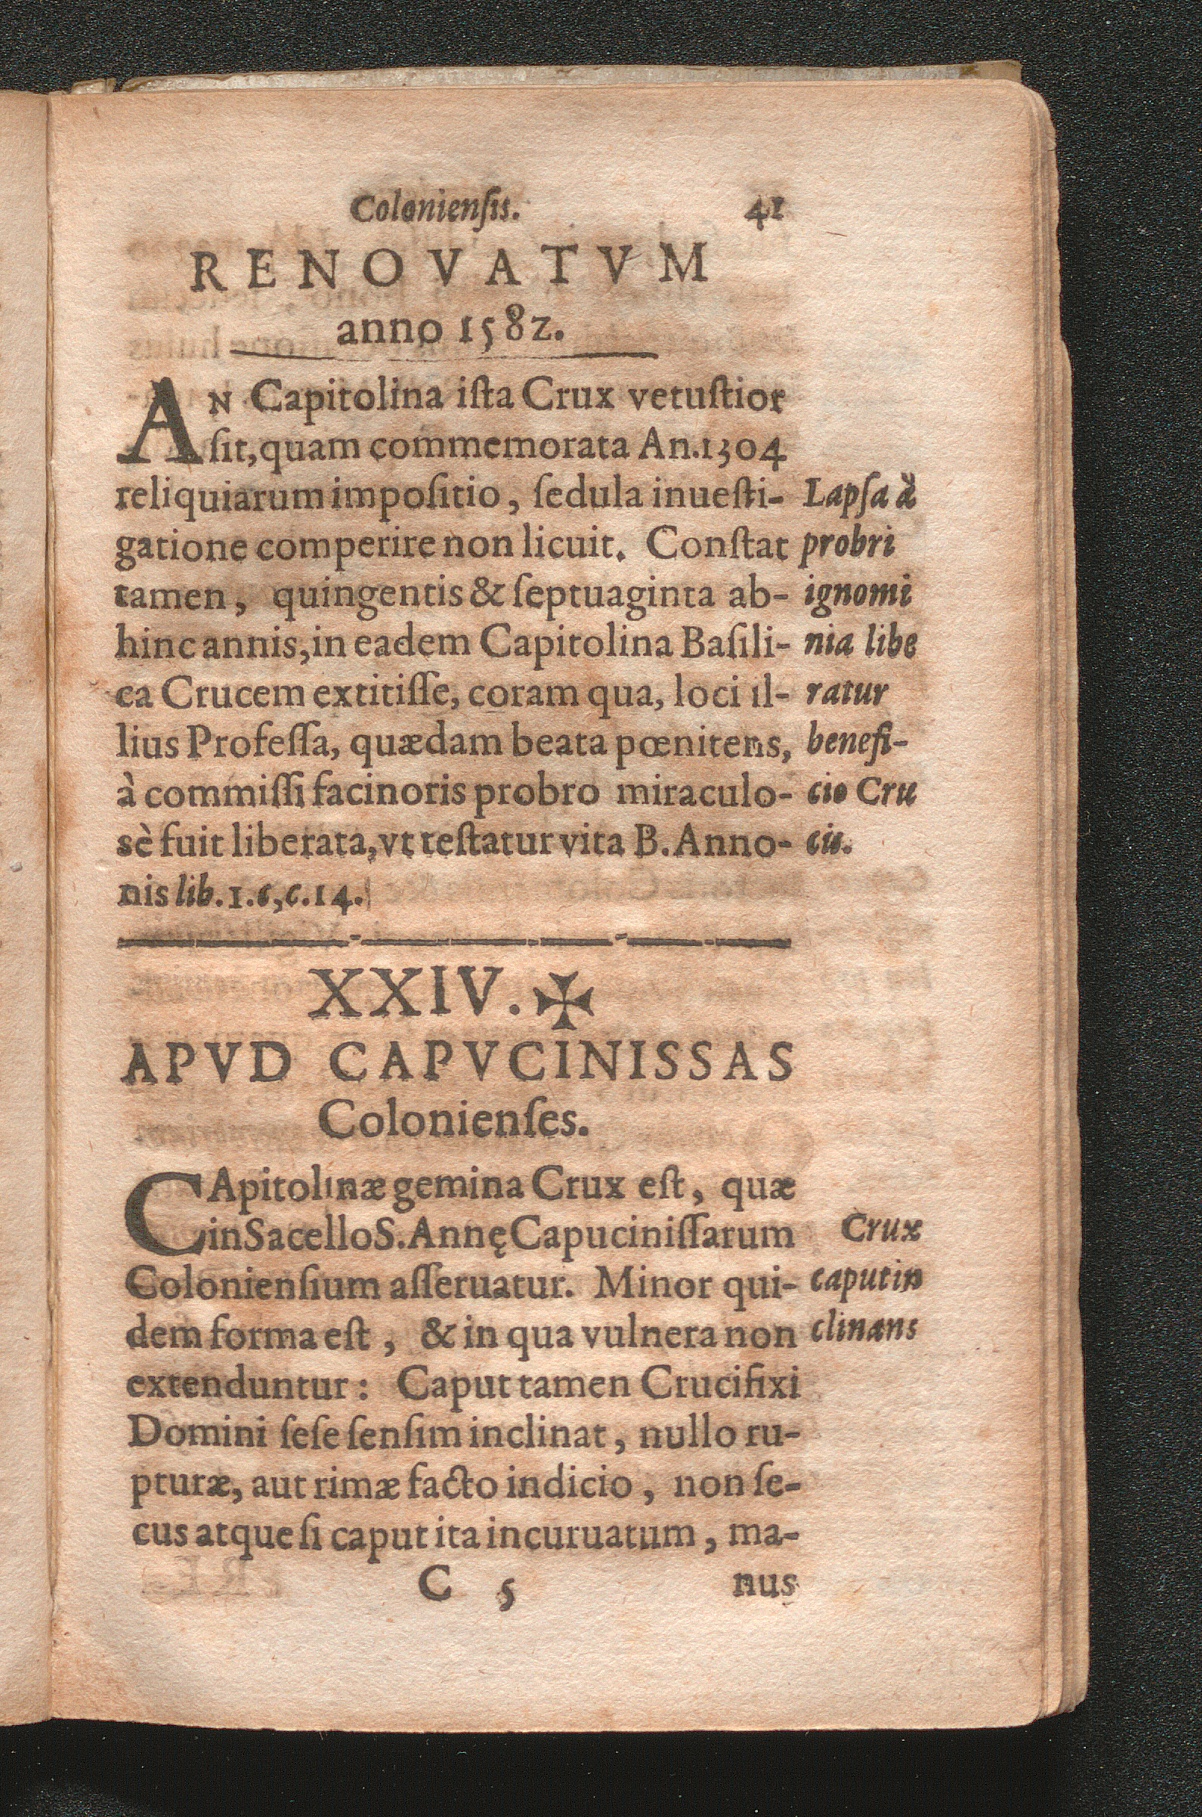 Coloniensis. 41
RENOVATVM
anno 1582.
AN Capitolina ista Crux vetustior
sit, quam commemorata An. 1304
reliquiarum impositio, sedula inuesti-
gatione comperire non licuit. Constat
tamen, quingentis & septuaginta ab-
hinc annis, in eadem Capitolina Basili-
ca Crucem extitisse, coram qua, loci il-
lius Professa, quædam beata pœnitens,
à commissi facinoris probro miraculo-
sè fuit liberata, vt testatur vita B. Anno-
nis lib. 1. c, c. 14.
Lapsa à
probri
ignomi
nia libe
ratur
benefi-
cio Cru
cis.
XXIV. ✠
APVD CAPVCINISSAS
Colonienses.
CApitolinæ gemina Crux est, quæ
in Sacello S. Annę Capucinissarum
Coloniensium asseruatur. Minor qui-
dem forma est, & in qua vulnera non
extenduntur: Caput tamen Crucifixi
Domini sese sensim inclinat, nullo ru-
pturæ, aut rimæ facto indicio, non se-
cus atque si caput ita incuruatum, ma-
Crux
caput in
clinans
C 5 nus